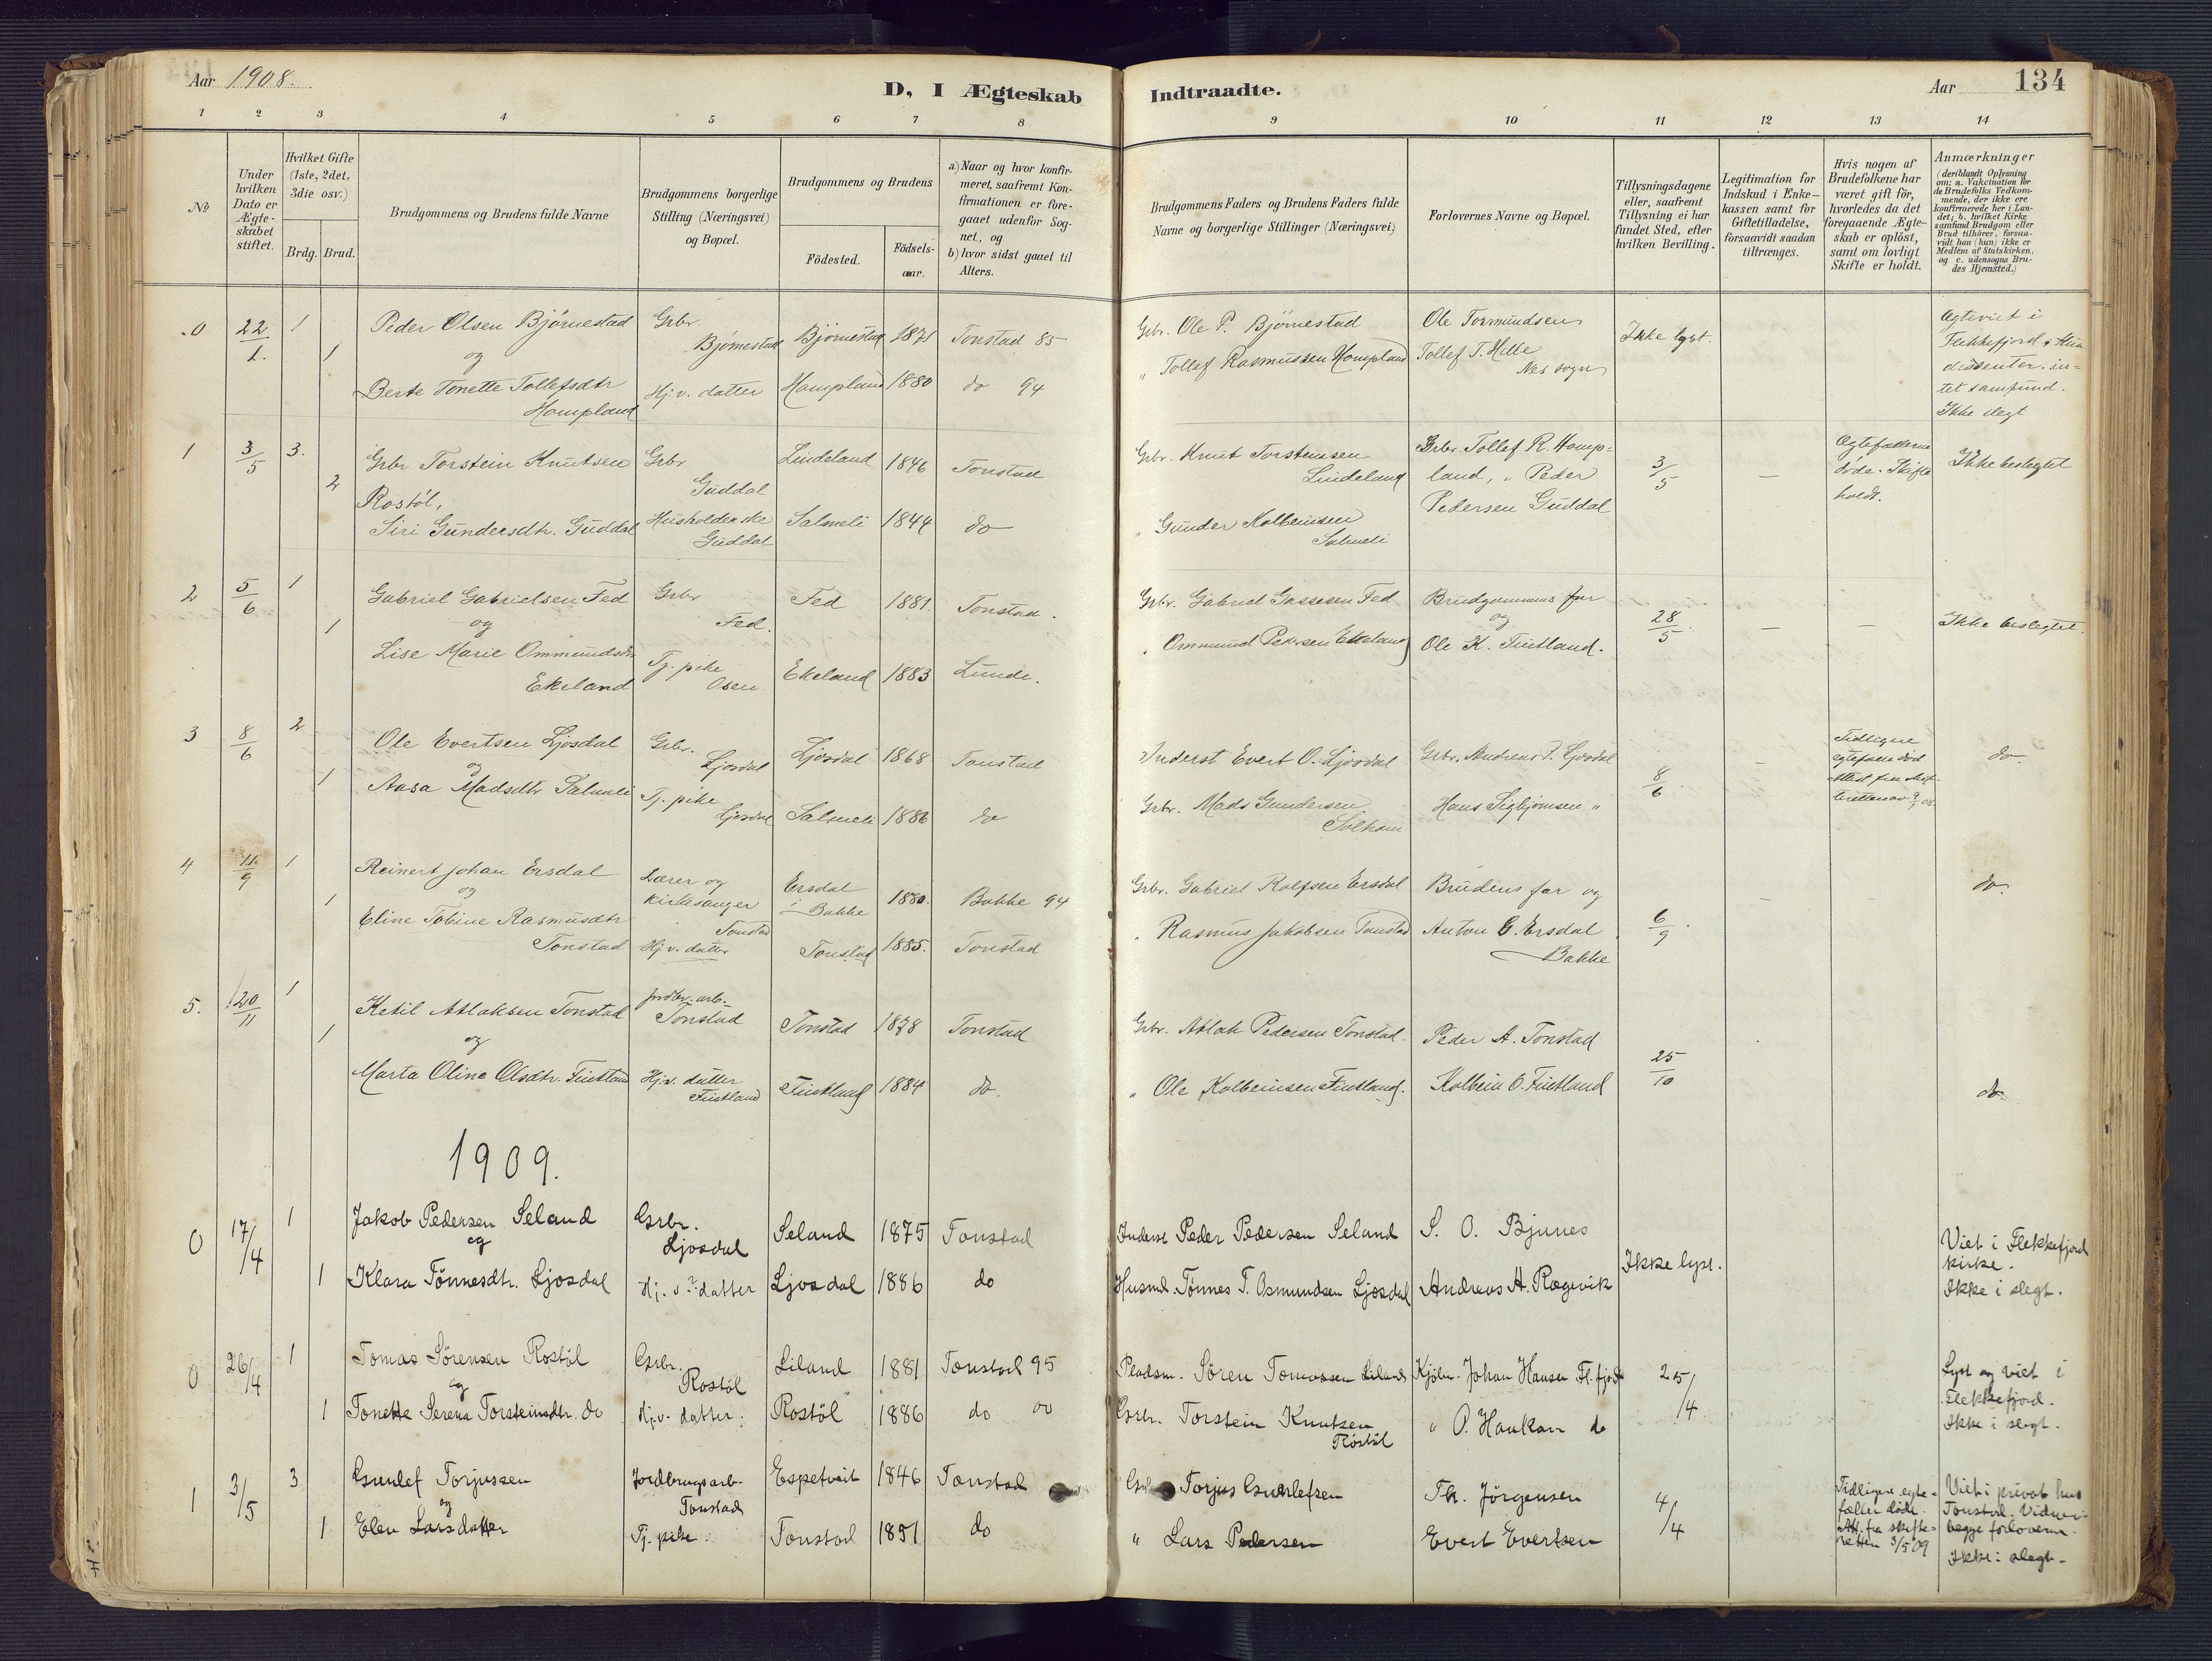 Aar 1908.
D, I Ægteskab Indtraadte.
Aar 134
1 2 3 4 5 6 7 8 9 10 11 12 13 14
No
Under hvilken Dato er Ægteskabet stiftet.
Hvilket Gifte (1ste, 2det, 3die osv.)
Brdg. Brud.
Brudgommens og Brudens fulde Navne
Brudgommens borgerlige Stilling (Næringsvei) og Bopæl.
Brudgommens og Brudens
Fødested.
Fødselsaar.
a) Naar og hvor konfirmeret, saafremt Konfirmationen er foregaaet udenfor Sognet, og
b) hvor sidst gaaet til Alters.
Brudgommens Faders og Brudens Faders fulde Navne og borgerlige Stillinger (Næringsvei)
Forlovernes Navne og Bopæl.
Tillysningsdagene eller, saafremt Tillysning ei har fundet Sted, efter hvilken Bevilling.
Legitimation for Indskud i Enkekassen samt for Giftetilladelse, forsaavidt saadan tiltrænges.
Hvis nogen af Brudefolkene har været gift før, hvorledes da det foregaaende Ægteskab er opløst, samt om lovligt Skifte er holdt.
Anmærkninger (deriblandt Oplysning om: a. Vakcination for de Brudefolks Vedkommende, der ikke ere konfirmerede her i Landet; b. hvilket Kirkesamfund Brudgom eller Brud tilhører, forsaavidt han (hun) ikke er Medlem af Statskirken, og c. udensogns Brudes Hjemsted.)
0 22/1 1 Peder Olsen Bjørnestad Grbr. Bjørnestad Bjørnestad 1871 Tonstad 85 Grbr. Ole P. Bjørnestad Ole Tormundsen Ikke lyst.
1 og
Berte Tonette Tollefsdtr Hompland Hj.v. datter Hompland 1880 do 94 " Tollef Rasmussen Hompland Tollef T. Helle Nes sogn
Flekkefjord
dissenter. in-
tet samfund.
Ikke slegt
1 3/5 3. Grbr Torstein Knutsen Rostøl, Grbr Guddal Lindeland 1846 Tonstad Grbr. Knut Torsteinsen Lindeland Grbr. Tollef R. Homp-
land, " Peder Pedersen Guddal 3/5 — Egtefellerne døde. Skifte holdt. Ikke beslegtet
2 Siri Gundersdtr. Guddal Husholderske Guddal Salmeli 1844 do " Gunder Kolbeinsen Salmeli
2 5/6 1 Gabriel Gabrielsen Fed Grbr Fed. Fed 1881. Tonstad. Grbr. Gabriel Gassesen Fed Brudgommens far 28/5 — — Ikke beslegtet.
1 og
Lise Marie Ommundsdtr Ekeland Tj. pike Osen Ekeland 1883 Lunde. " Ommund Pedersen Ekeland og Ole K. Fintland.
3 8/6 2 Ole Evertsen Ljosdal Grbr. Ljosdal Ljosdal 1868 Tonstad Inderst Evert O. Ljosdal Grbr. Andreas T. Ljosdal 8/6 — Tidligere egtefelle død do
1 og
Aasa Madsdtr Salmeli Tj. pike Ljosdal Salmeli 1886 do Grbr. Mads Gundersen Solheim Hans Sigbjørnsen "
4 11/9 1 Reinert Johan Ersdal Lærer og kirkesanger Tonstad Ersdal i Bakke 1880. Bakke 94 Grbr. Gabriel Rolfsen Ersdal Brudens far og 6/9 do.
1 og
Eline Tobine Rasmusdtr Tonstad Hj.v. datter Tonstad 1885. Tonstad " Rasmus Jakobsen Tonstad Anton G. Ersdal Bakke
5. 20/11 1 Ketil Atlaksen Tonstad jordbr. arb. Tonstad Tonstad 1878 Tonstad Grbr. Atlak Pedersen Tonstad. Peder A. Tonstad 25/10
1 og
Marta Oline Olsdtr. Fintland Hj.v. datter Fintland Fintland 1884 do. " Ole Kolbeinsen Fintland. Kolbein O. Fintland do
1909.
0 17/4 1 Jakob Pedersen Seland Grbr. Ljosdal Seland 1875 Tonstad Inderst Peder Pedersen Seland S. O. Bjunes Ikke lyst. Viet i Flekkefjord kirke.
og
1 Klara Tønnesdtr. Ljosdal Hj. v. datter Ljosdal 1886 do Husmd. Tønnes T. Osmundsen Ljosdal Andreas A. Rægevik Ikke i slegt.
0 26/4 1 Tomas Sørensen Rostøl Grbr. Rostøl Liland 1881 Tonstad 95 Pladsm. Søren Tomassen Liland Kjøbm. Johan Hansen Fl.fjord 25/4 Lyst og viet i Flekkefjord.
og
1 Tonette Serena Torsteinsdtr. do Hj.v. datter: Rostøl 1886 do 00 Grbr. Torstein Knutsen Røstøl " O. Haukan do Ikke i slegt.
1 3/5 3 Gunlef Torjussen Jordbrugsarb. Tonstad Espetveit 1846 Tonstad Torjus Gunlefsen Th. Jørgensen 4/4 Tidligere egte-
feller døde. Att. fra skifte-
retten 3/5 09 Viet i privat hus Tonstad. begge forloverne.
og
1 Elen Larsdatter Tj. pike. Tonstad 1851 do " Lars Pedersen Evert Evertsen Ikke i slegt.